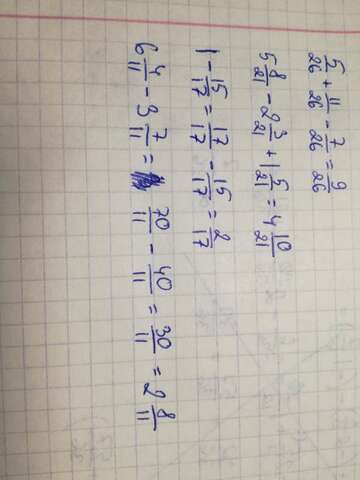 5/26 + 11/26 - 7/26 = 9/26
5 8/21 - 2 3/21 + 1 5/21 = 4 10/21
1 - 15/17 = 17/17 - 15/17 = 2/17
6 4/11 - 3 7/11 = 70/11 - 40/11 = 30/11 = 2 8/11